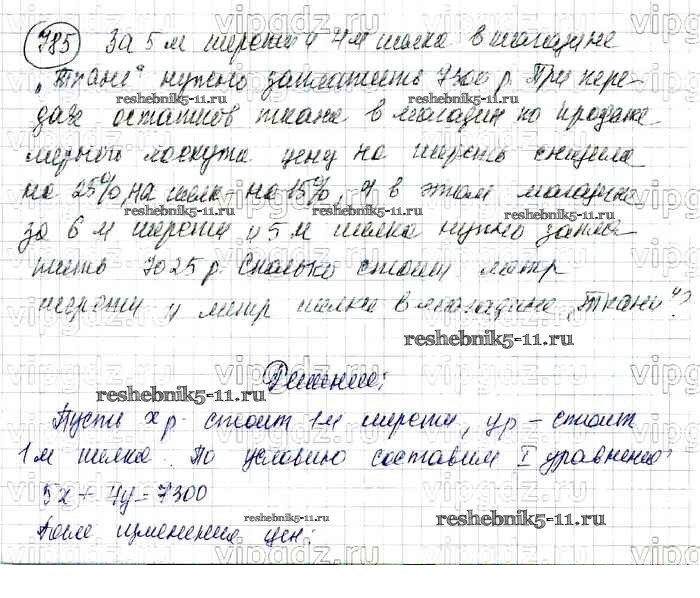 785 За 5 м шерсти и 4 м шелка в магазине
„Ткани“ нужно заплатить 7300 р. При пере-
даче остатков ткани в магазин по продаже
мерного лоскута цену на шерсть снизили
на 25%, на шелк - на 15%, и в этом магазине
за 6 м шерсти и 5 м шелка нужно запла-
тить 7025 р. Сколько стоит метр
шерсти и метр шелка в магазине „Ткани“?
Решение:
Пусть x р - стоит 1 м шерсти, y р - стоит
1 м шелка. По условию составим I уравнение:
5x + 4y = 7300
После изменения цен:
vipgdz.ru
reshebnik5-11.ru